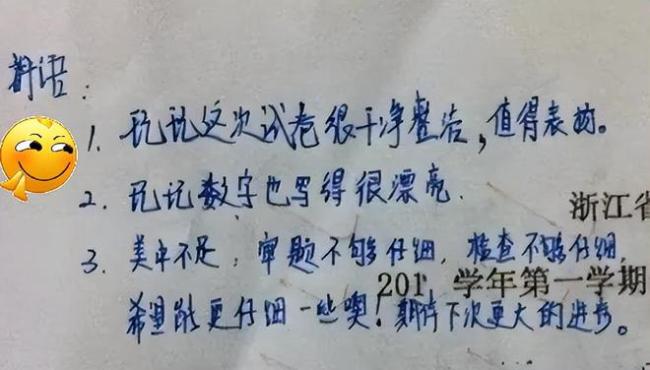 评语:
1. 玩玩这次试卷很干净整洁,值得表扬。
2. 玩玩数字也写得很漂亮.
浙江省
3. 美中不足:审题不够仔细,检查不够仔细,
201 学年第一学期
希望能更仔细一些噢!期待下次更大的进步。